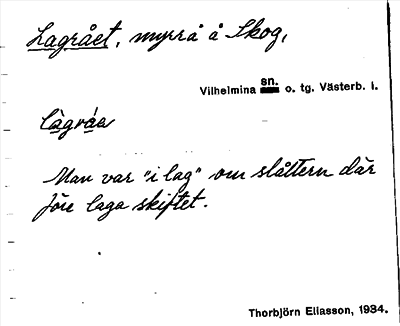 Lagrået, myrrå å Skog,
Vilhelmina sn. o. tg. Västerb. l.
làgráa
Man var "i lag" om slåttern där
före laga skiftet.
Thorbjörn Eliasson, 1934.